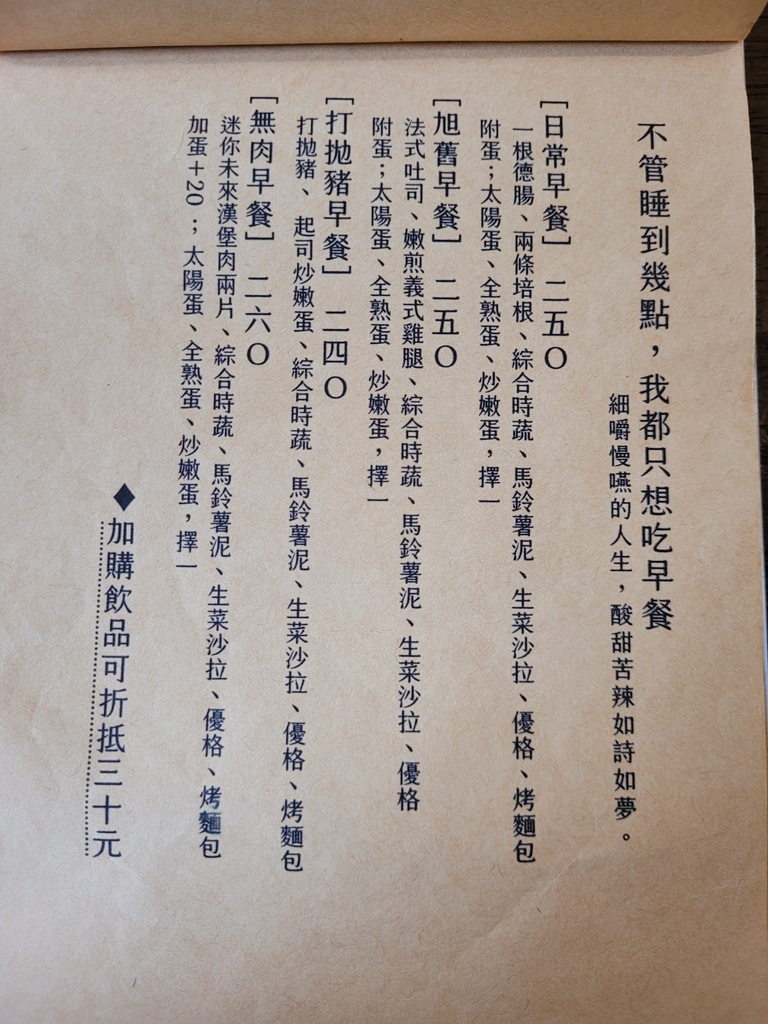 不管睡到幾點，我都只想吃早餐
細嚼慢嚥的人生，酸甜苦辣如詩如夢。
[日常早餐] 二五〇
一根德腸、兩條培根、綜合時蔬、馬鈴薯泥、生菜沙拉、優格、烤麵包
附蛋；太陽蛋、全熟蛋、炒嫩蛋，擇一
[旭舊早餐] 二五〇
法式吐司、嫩煎義式雞腿、綜合時蔬、馬鈴薯泥、生菜沙拉、優格
附蛋；太陽蛋、全熟蛋、炒嫩蛋，擇一
[打拋豬早餐] 二四〇
打拋豬、起司炒嫩蛋、綜合時蔬、馬鈴薯泥、生菜沙拉、優格、烤麵包
[無肉早餐] 二六〇
迷你未來漢堡肉兩片、綜合時蔬、馬鈴薯泥、生菜沙拉、優格、烤麵包
加蛋+20；太陽蛋、全熟蛋、炒嫩蛋，擇一
◆加購飲品可折抵三十元